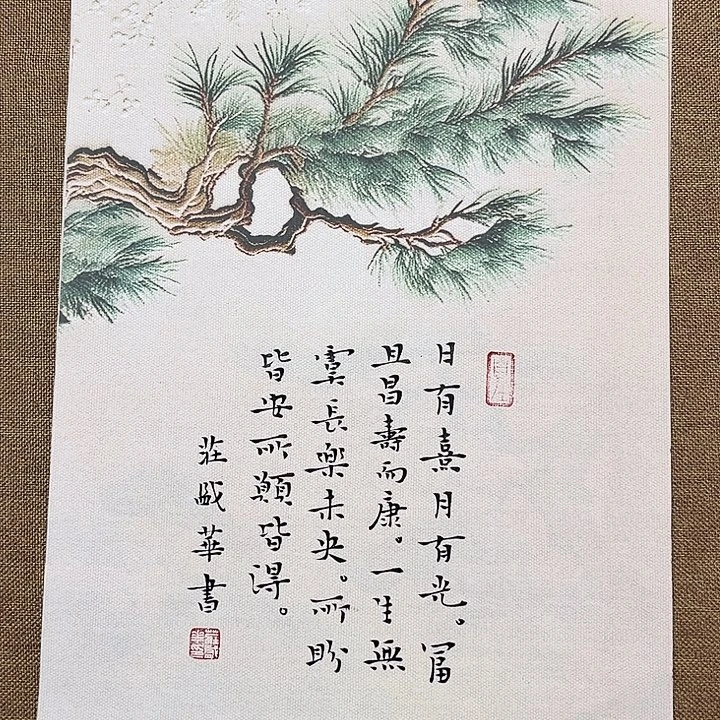 日有熹月有光。冨
且昌壽而康。一生無
虞長樂未央。所盼
皆安所願皆得。
莊華書